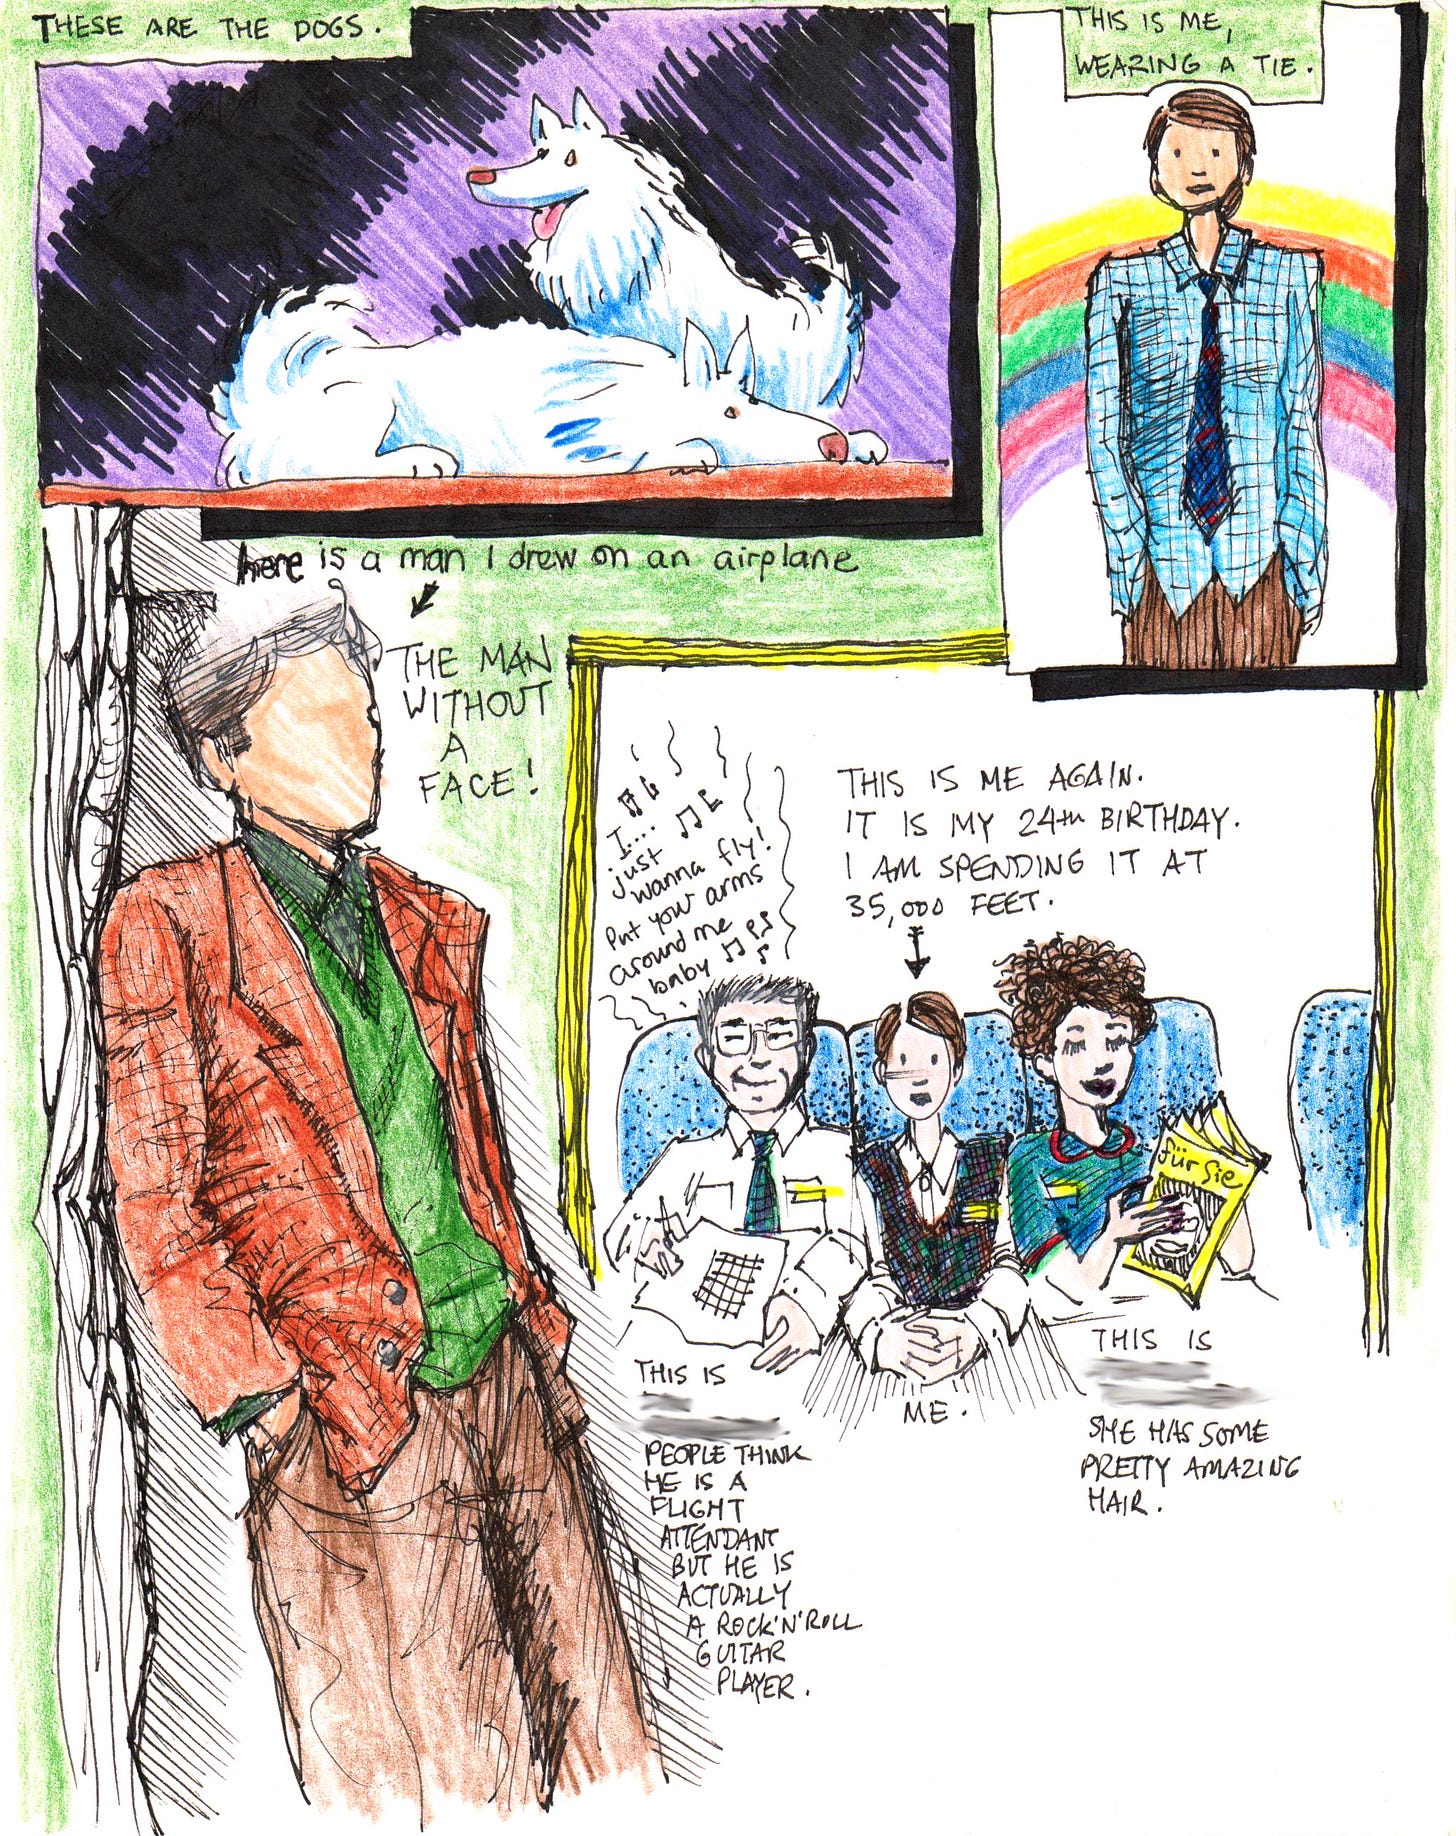 THESE ARE THE DOGS.
THIS IS ME,
WEARING A TIE.
here is a man I drew on an airplane
THE MAN
WITHOUT
A
FACE!
I....
just
wanna fly!
Put your arms
around me
baby
THIS IS ME AGAIN.
IT IS MY 24th BIRTHDAY.
I AM SPENDING IT AT
35,000 FEET.
für Sie
THIS IS
PEOPLE THINK
HE IS A
FLIGHT
ATTENDANT
BUT HE IS
ACTUALLY
A ROCK'N'ROLL
GUITAR
PLAYER.
ME.
THIS IS
SHE HAS SOME
PRETTY AMAZING
HAIR.